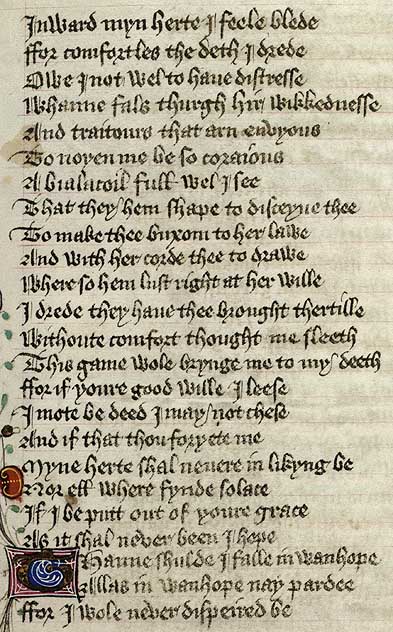 Inward myn herte I feele blede
ffor comfortles the deth I drede
Owe I not wel to haue distresse
Whanne fals thurgh hir wikkednesse
And traitours that arn envyous
To noyen me be so coraious
A bialacoil full wel I see
That they hem shape to disceyue thee
To make thee buxom to her lawe
And with her corde thee to drawe
Where so hem lust right at her wille
I drede they haue thee brought thertille
Withoute comfort thought me sleeth
This game wole brynge me to my deeth
ffor if youre good wille I leese
I mote be deed I may not chese
And if that thou foryete me
Myne herte shal neuere in likyng be
Nor ell where fynde solace
If I be putt out of youre grace
As it shal never been I hope
Thanne shulde I falle in wanhope
Allas in wanhope nay pardee
ffor I wole never dispeired be